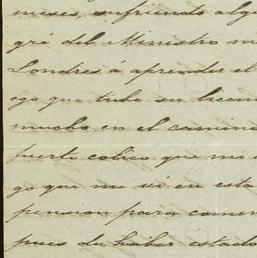 meses, sufriendo algu
gré del Ministro m
Londres á aprender el
ego que tube su licen
mucho en el camin
fuerte colico que me
go que me vi en esta
pension para comen
pues de haber estado